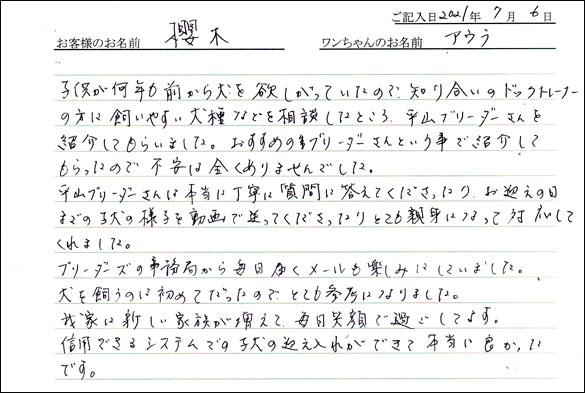 ご記入日2021年7月6日
お客様のお名前 櫻木 ワンちゃんのお名前 アウラ
子供が何年も前から犬を欲しがっていたので、知り合いのドックトレーナー
の方に飼いやすい犬種などを相談したところ、平山ブリーダーさんを
紹介してもらいました。おすすめのブリーダーさんという事で紹介して
もらったので不安は全くありませんでした。
平山ブリーダーさんは本当に丁寧に質問に答えてくださったり、お迎えの日
までの子犬の様子を動画で送ってくださったりとても親身になって対応して
くれました。
ブリーダーズの事務局から毎日届くメールも楽しみにしていました。
犬を飼うのは初めてだったので、とても参考になりました。
我家に新しい家族が増えて、毎日笑顔で過ごしてます。
信用できるシステムでの子犬の迎え入れができて本当に良かった
です。